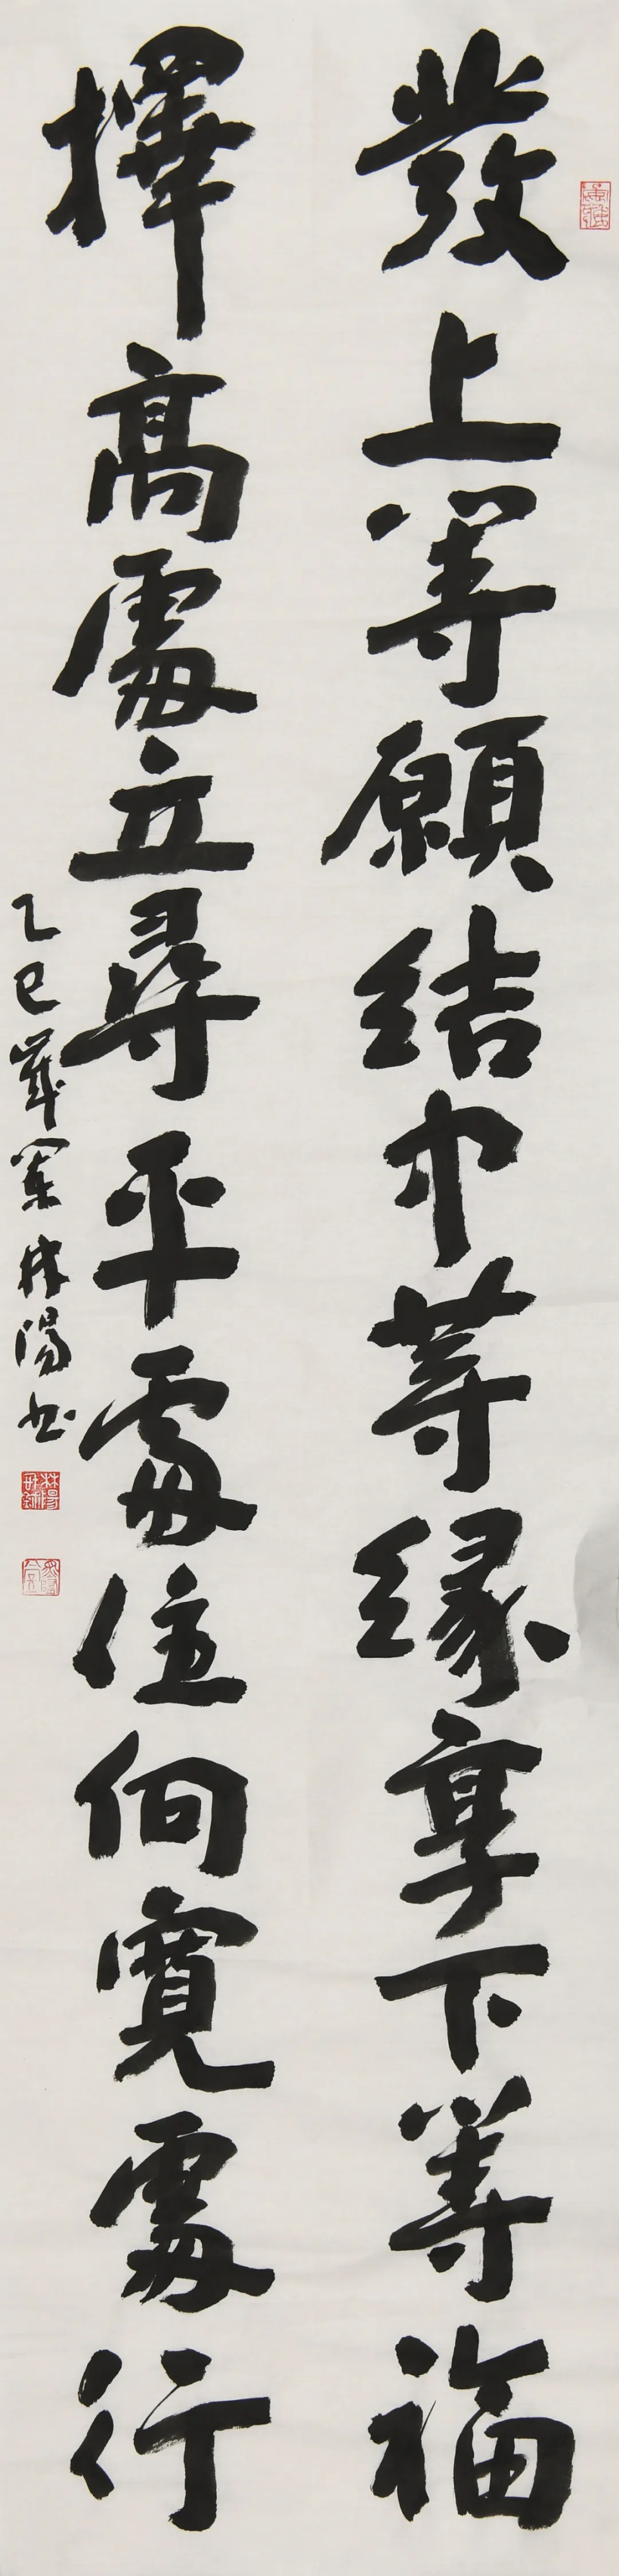 發上等願結中等緣享下等福
擇高處立尋平處住向寬處行
乙巳歲葉林陽書